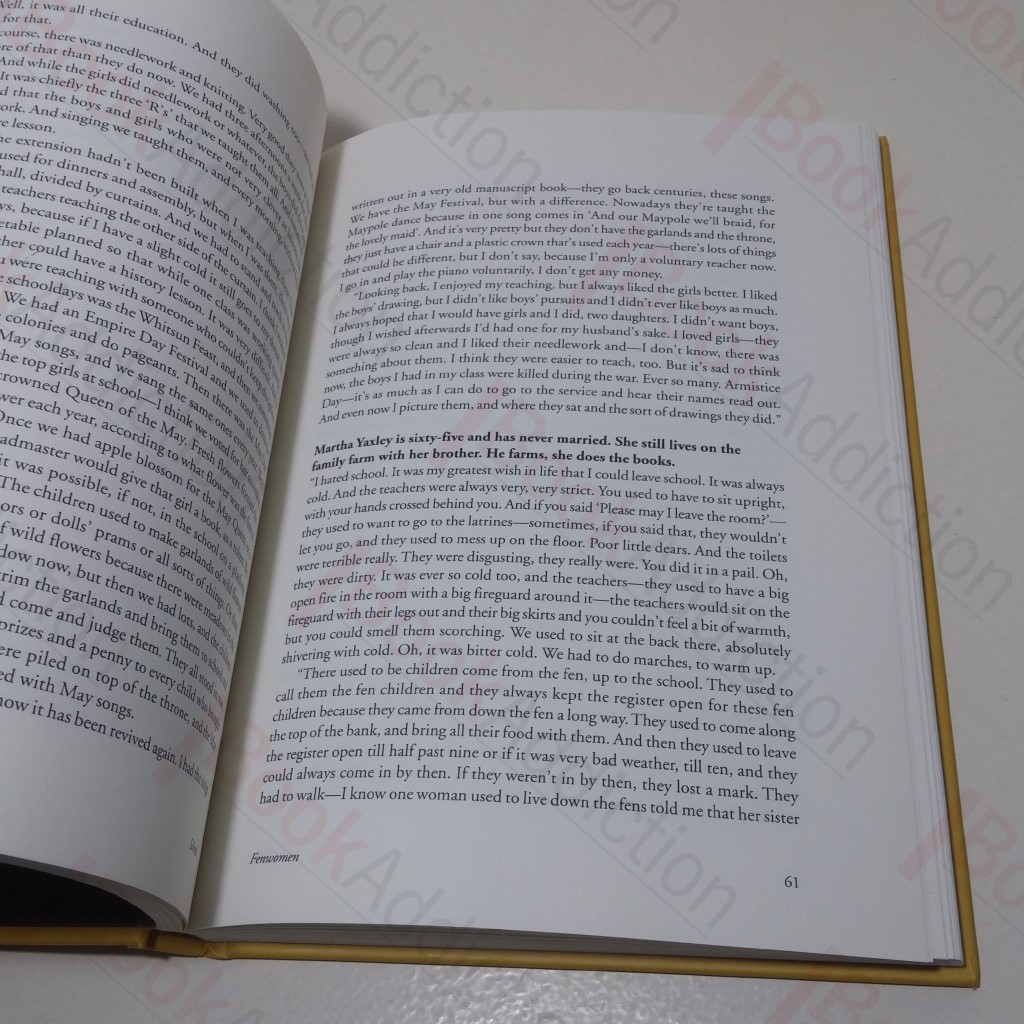 Well, it was all their education. And they did washing
for that.
course, there was needlework and knitting. Very good they
re of that than they do now. We had three afternoons
And while the girls did needlework or whatever, the boys
It was chiefly the three 'R's' that we taught them all
d that the boys and girls who were not very clever
ork. And singing we taught them, and every morning
re lesson.
he extension hadn't been built when I was teaching
used for dinners and assembly, but when I was
hall, divided by curtains. And we had to stand and
teachers teaching the other side of the curtain. I think
ys, because if I have a slight cold it still goes to my
etable planned so that while one class was
ther could have a history lesson. It was very difficult
u were teaching with someone who couldn't keep
e schooldays was the Whitsun Feast, and then
We had an Empire Day Festival and we used to
colonies and do pageants. Then there was the May
May songs, and we sang the same ones every year
the top girls at school—I think we voted for her
crowned Queen of the May. Fresh flowers
wer each year, according to what flower was
Once we had apple blossom for the May Queen
admaster would give that girl a book as a
it was possible, if not, in the school on a
The children used to make garlands of wild flowers
ors or dolls' prams or all sorts of things. Or
f wild flowers because there were meadows
dow now, but then we had lots, and the children
trim the garlands and bring them to school
d come and judge them. They all stood
prizes and a penny to every child who brought
ere piled on top of the throne, and the
ed with May songs.
now it has been revived again. I had the songs
written out in a very old manuscript book—they go back centuries, these songs.
We have the May Festival, but with a difference. Nowadays they're taught the
Maypole dance because in one song comes in 'And our Maypole we'll braid, for
the lovely maid'. And it's very pretty but they don't have the garlands and the throne,
they just have a chair and a plastic crown that's used each year—there's lots of things
that could be different, but I don't say, because I'm only a voluntary teacher now.
I go in and play the piano voluntarily, I don't get any money.
"Looking back, I enjoyed my teaching, but I always liked the girls better. I liked
the boys' drawing, but I didn't like boys' pursuits and I didn't ever like boys as much.
I always hoped that I would have girls and I did, two daughters. I didn't want boys,
though I wished afterwards I'd had one for my husband's sake. I loved girls—they
were always so clean and I liked their needlework and—I don't know, there was
something about them. I think they were easier to teach, too. But it's sad to think
now, the boys I had in my class were killed during the war. Ever so many. Armistice
Day—it's as much as I can do to go to the service and hear their names read out.
And even now I picture them, and where they sat and the sort of drawings they did."
Martha Yaxley is sixty-five and has never married. She still lives on the
family farm with her brother. He farms, she does the books.
"I hated school. It was my greatest wish in life that I could leave school. It was always
cold. And the teachers were always very, very strict. You used to have to sit upright,
with your hands crossed behind you. And if you said 'Please may I leave the room?'—
they used to want to go to the latrines—sometimes, if you said that, they wouldn't
let you go, and they used to mess up on the floor. Poor little dears. And the toilets
were terrible really. They were disgusting, they really were. You did it in a pail. Oh,
they were dirty. It was ever so cold too, and the teachers—they used to have a big
open fire in the room with a big fireguard around it—the teachers would sit on the
fireguard with their legs out and their big skirts and you couldn't feel a bit of warmth,
but you could smell them scorching. We used to sit at the back there, absolutely
shivering with cold. Oh, it was bitter cold. We had to do marches, to warm up.
"There used to be children come from the fen, up to the school. They used to
call them the fen children and they always kept the register open for these fen
children because they came from down the fen a long way. They used to come along
the top of the bank, and bring all their food with them. And then they used to leave
the register open till half past nine or if it was very bad weather, till ten, and they
could always come in by then. If they weren't in by then, they lost a mark. They
had to walk—I know one woman used to live down the fens told me that her sister
Fenwomen
61
Book Addiction